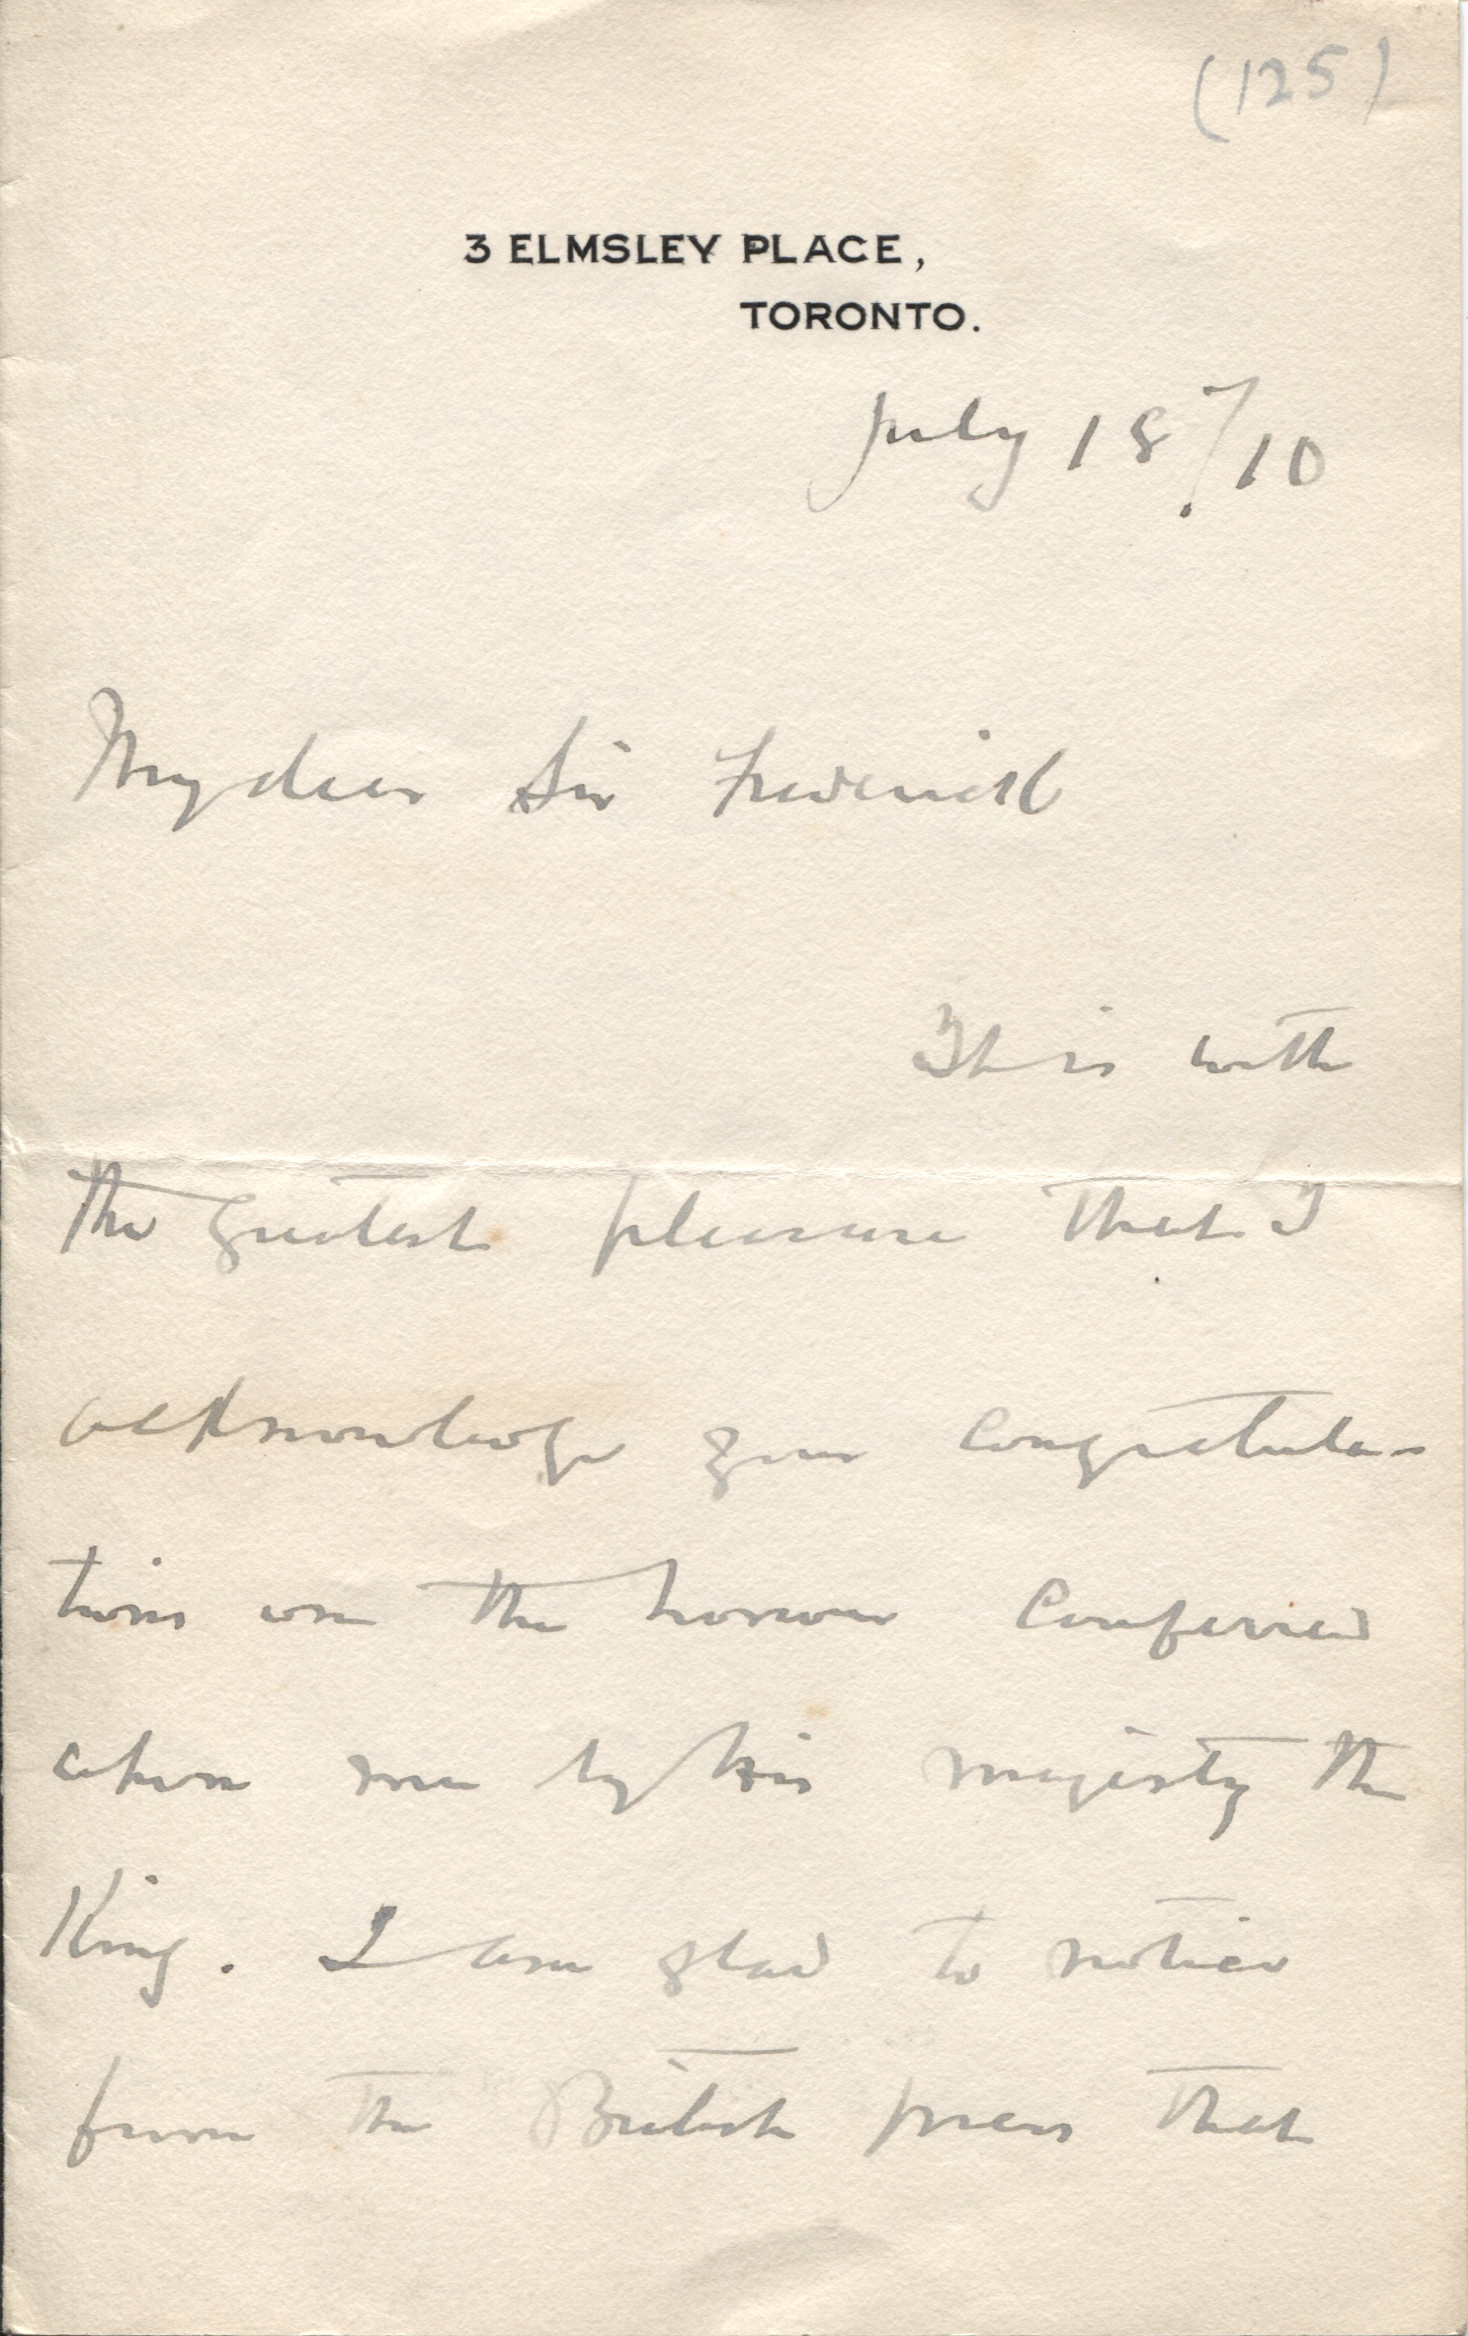 (125)
3 ELMSLEY PLACE,
TORONTO.
July 18/10
My dear Sir Frederick
It is with
the greatest pleasure that I
acknowledge your congratula-
tions on the honour conferred
upon me by his majesty the
King. I am glad to notice
from the British press that